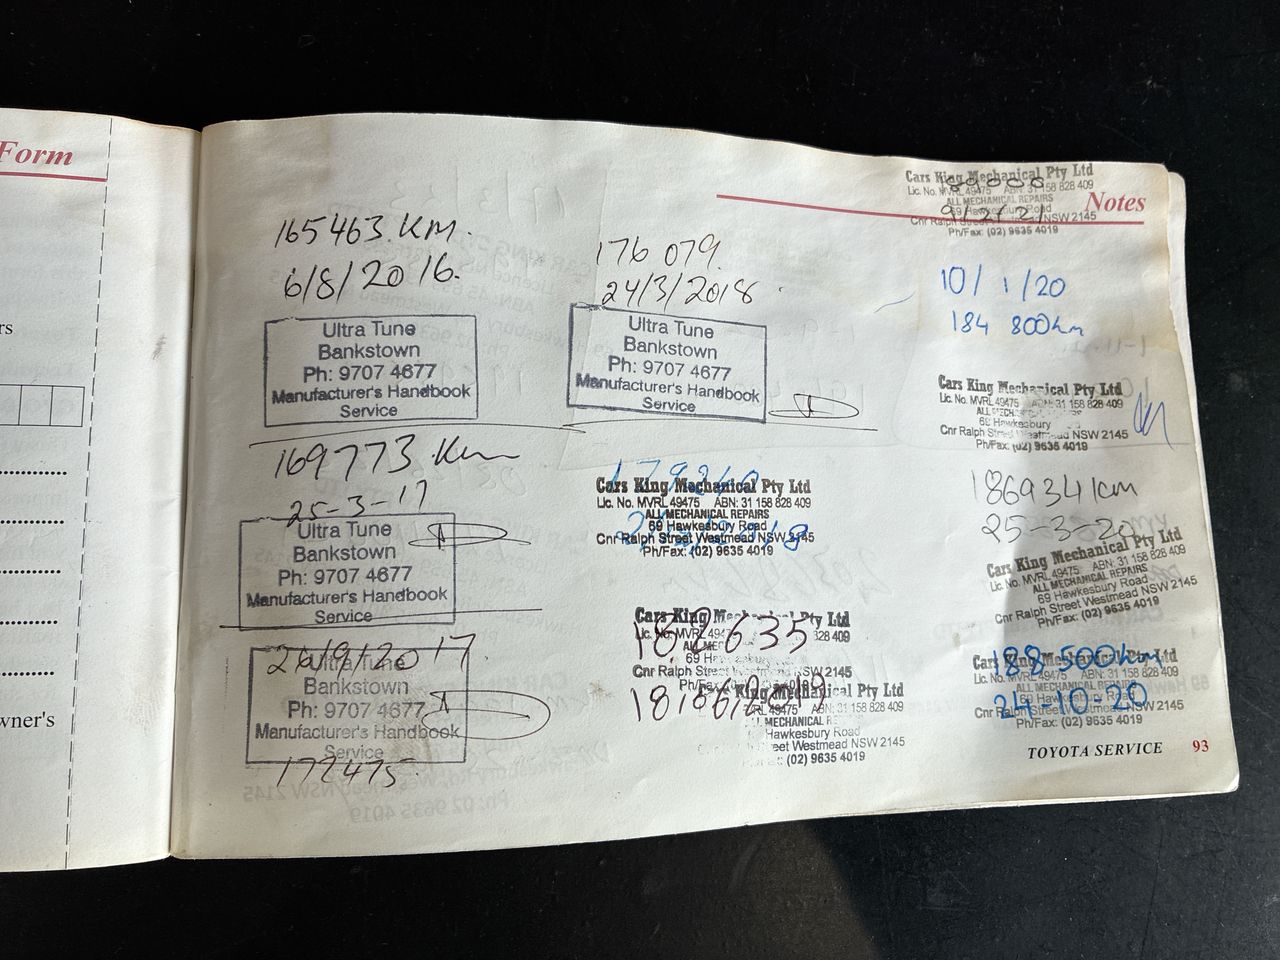 Form
rs
owner's
Notes
165463 KM.
6/8/2016.
Ultra Tune
Bankstown
Ph: 9707 4677
Manufacturer's Handbook
Service
169773 Km
25-3-17
Ultra Tune
Bankstown
Ph: 9707 4677
Manufacturer's Handbook
Service
26/9/2017
Ultra Tune
Bankstown
Ph: 9707 4677
Manufacturer's Handbook
Service
172475
176 079
24/3/2018
Ultra Tune
Bankstown
Ph: 9707 4677
Manufacturer's Handbook
Service
Cars King Mechanical Pty Ltd
Lic. No. MVRL 49475 ABN: 31 158 828 409
ALL MECHANICAL REPAIRS
69 Hawkesbury Road
Cnr Ralph Street Westmead NSW 2145
Ph/Fax: (02) 9635 4019
Cars King Mechanical Pty Ltd
182635
828 409
69
Cnr Ralph NSW 2145
Ph/Fax
King Mechanical Pty Ltd
49475 ABN: 31 158 828 409
MECHANICAL
Hawkesbury Road
Westmead NSW 2145
(02) 9635 4019
Cars King Mechanical Pty Ltd
Lic. No. MVRL 49475 ABN: 31 158 828 409
ALL MECHANICAL REPAIRS
69 Hawkesbury Road
9/2/21
Cnr Ralph Street NSW 2145
Ph/Fax: (02) 9635 4019
10/1/20
184 800km
Cars King Mechanical Pty Ltd
Lic. No. MVRL 49475 ABN: 31 158 828 409
ALL
69 Hawkesbury
Cnr Ralph Street Westmead NSW 2145
Ph/Fax: (02) 9635 4019
186934km
25-3-20
Cars King Mechanical Pty Ltd
Lic. No. MVRL 49475 ABN: 31 158 828 409
ALL MECHANICAL REPAIRS
69 Hawkesbury Road
Cnr Ralph Street Westmead NSW 2145
Ph/Fax: (02) 9635 4019
188 500km
Cars King Mechanical Pty Ltd
Lic. No. MVRL 49475 ABN: 31 158 828 409
ALL MECHANICAL REPAIRS
69 Hawkesbury Road
24-10-20
Cnr Ralph Street Westmead NSW 2145
Ph/Fax: (02) 9635 4019
TOYOTA SERVICE 93